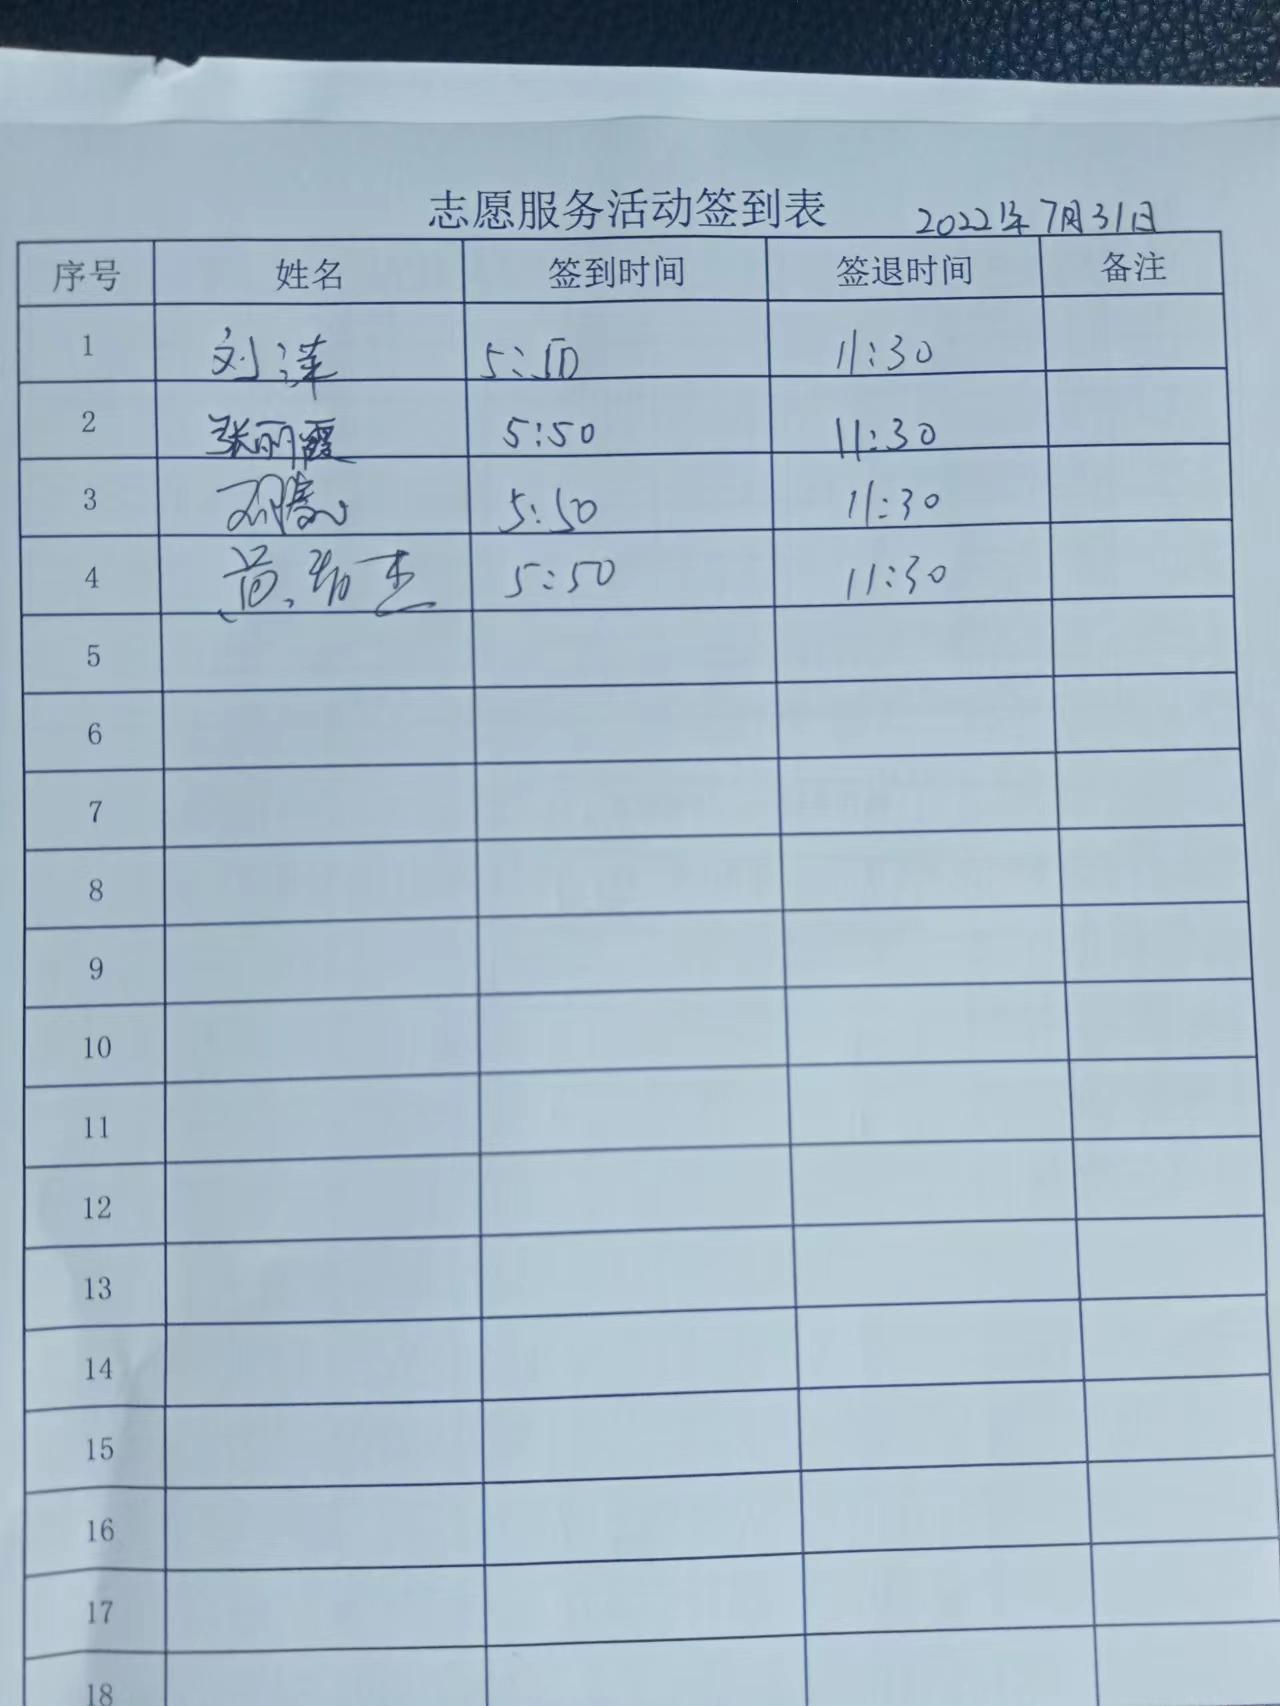 志愿服务活动签到表 2022年7月31日
序号 姓名 签到时间 签退时间 备注
1 刘 5:50 11:30
2 张丽霞 5:50 11:30
3 5:50 11:30
4 5:50 11:30
5
6
7
8
9
10
11
12
13
14
15
16
17
18